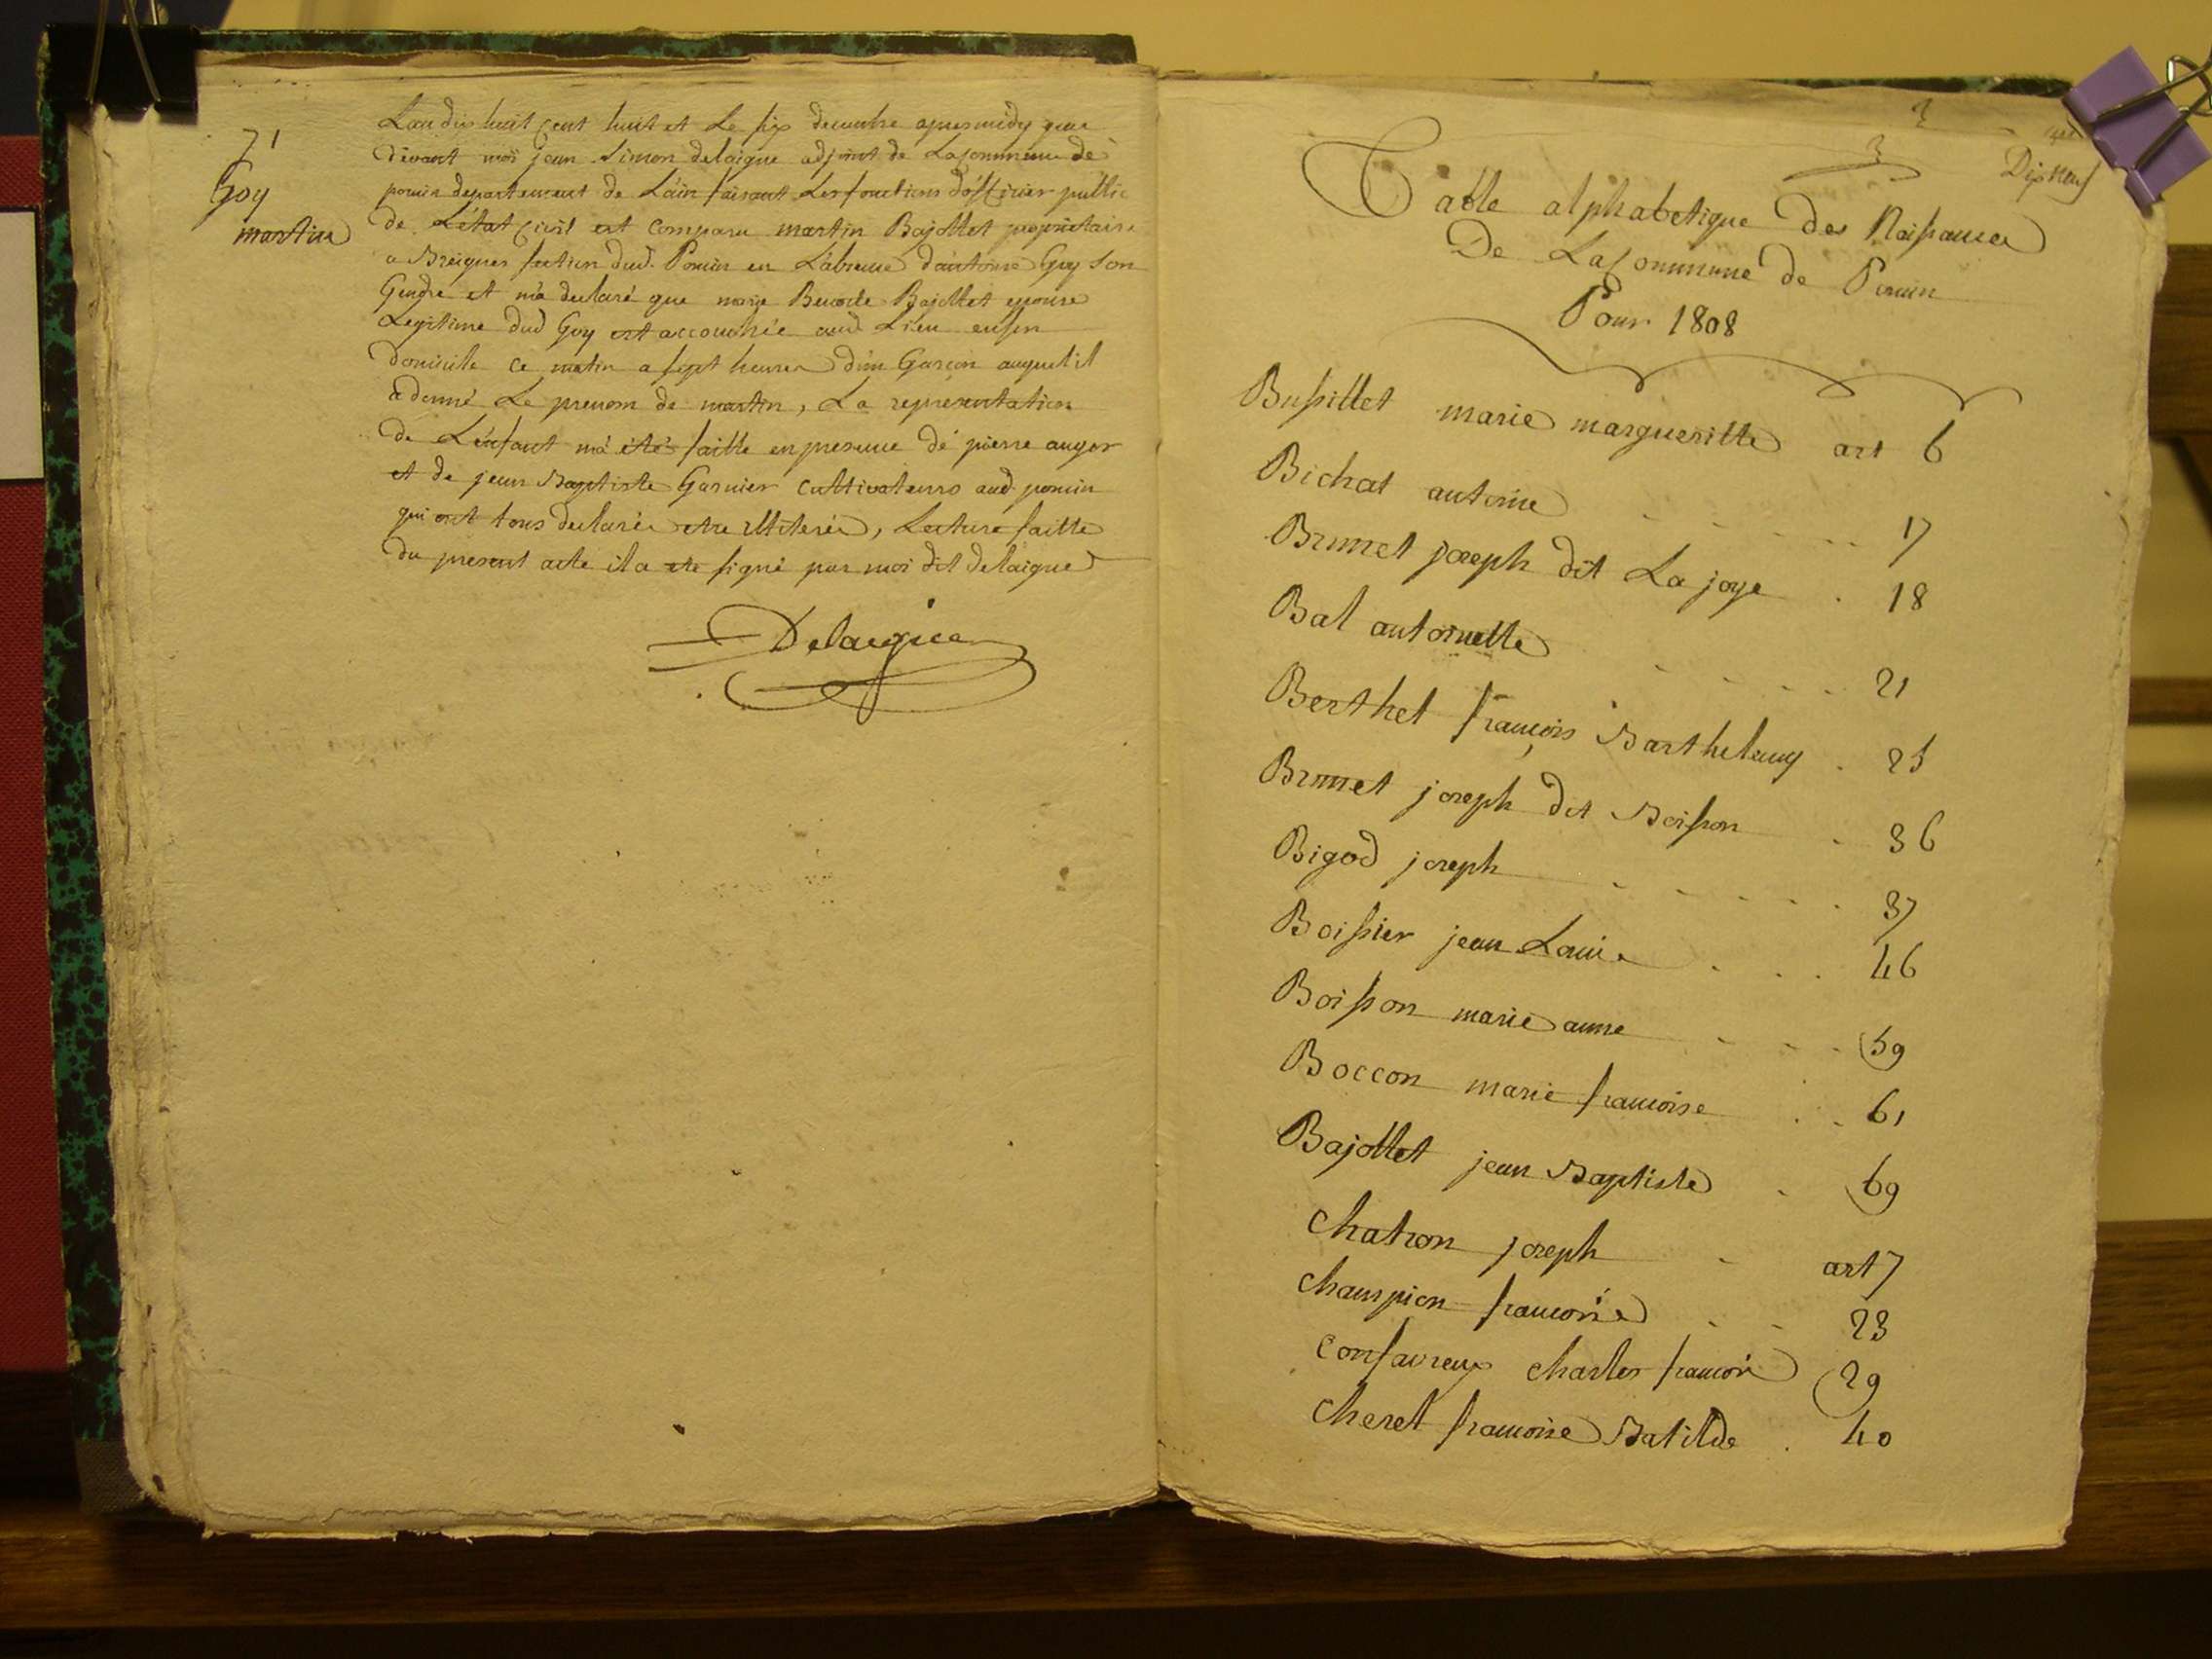 71
Goy
martin
L'an dix huit cent huit et le six decembre apres midy par
devant moi jean Simon delaigue adjoint de la commune de
pouin departement de L'ain faisant les fonctions d'officier public
de L'état civil est comparu martin Bajollet propriétaire
a Breignes section dud. Pouin en L'absence d'antoine Goy son
Gendre et m'a declaré que marie Benoite Bajollet epouse
Legitime dud Goy est accouchée aud Lieu en son
domicile ce matin a sept heures d'un Garçon auquel il
a donné Le prenom de martin, La representation
de L'enfant m'a été faitte en presence de pierre auger
et de jean Baptiste Garnier cultivateurs aud. pouin
qui ont tous declarés etre illiterés, Lecture faitte
du present acte il a ete signé par moi dit delaigue
Delaigue
Dix neuf
Table alphabetique des Naissances
De La Commune de Pouin
Pour 1808
Bussillet marie margueritte art 6
Bichat antoine 17
Brunet joseph dit La joye 18
Bal antoinette 21
Berthet françois Barthelemy 25
Brunet joseph dit Boisson 36
Bigod joseph 37
Boissier jean Louis 46
Boisson marie anne 59
Boccon marie francoise 61
Bajollet jean Baptiste 69
Chatron joseph art 7
Champion francois 23
Confavreux Charles francois 29
Cheret francoise Batilde 40